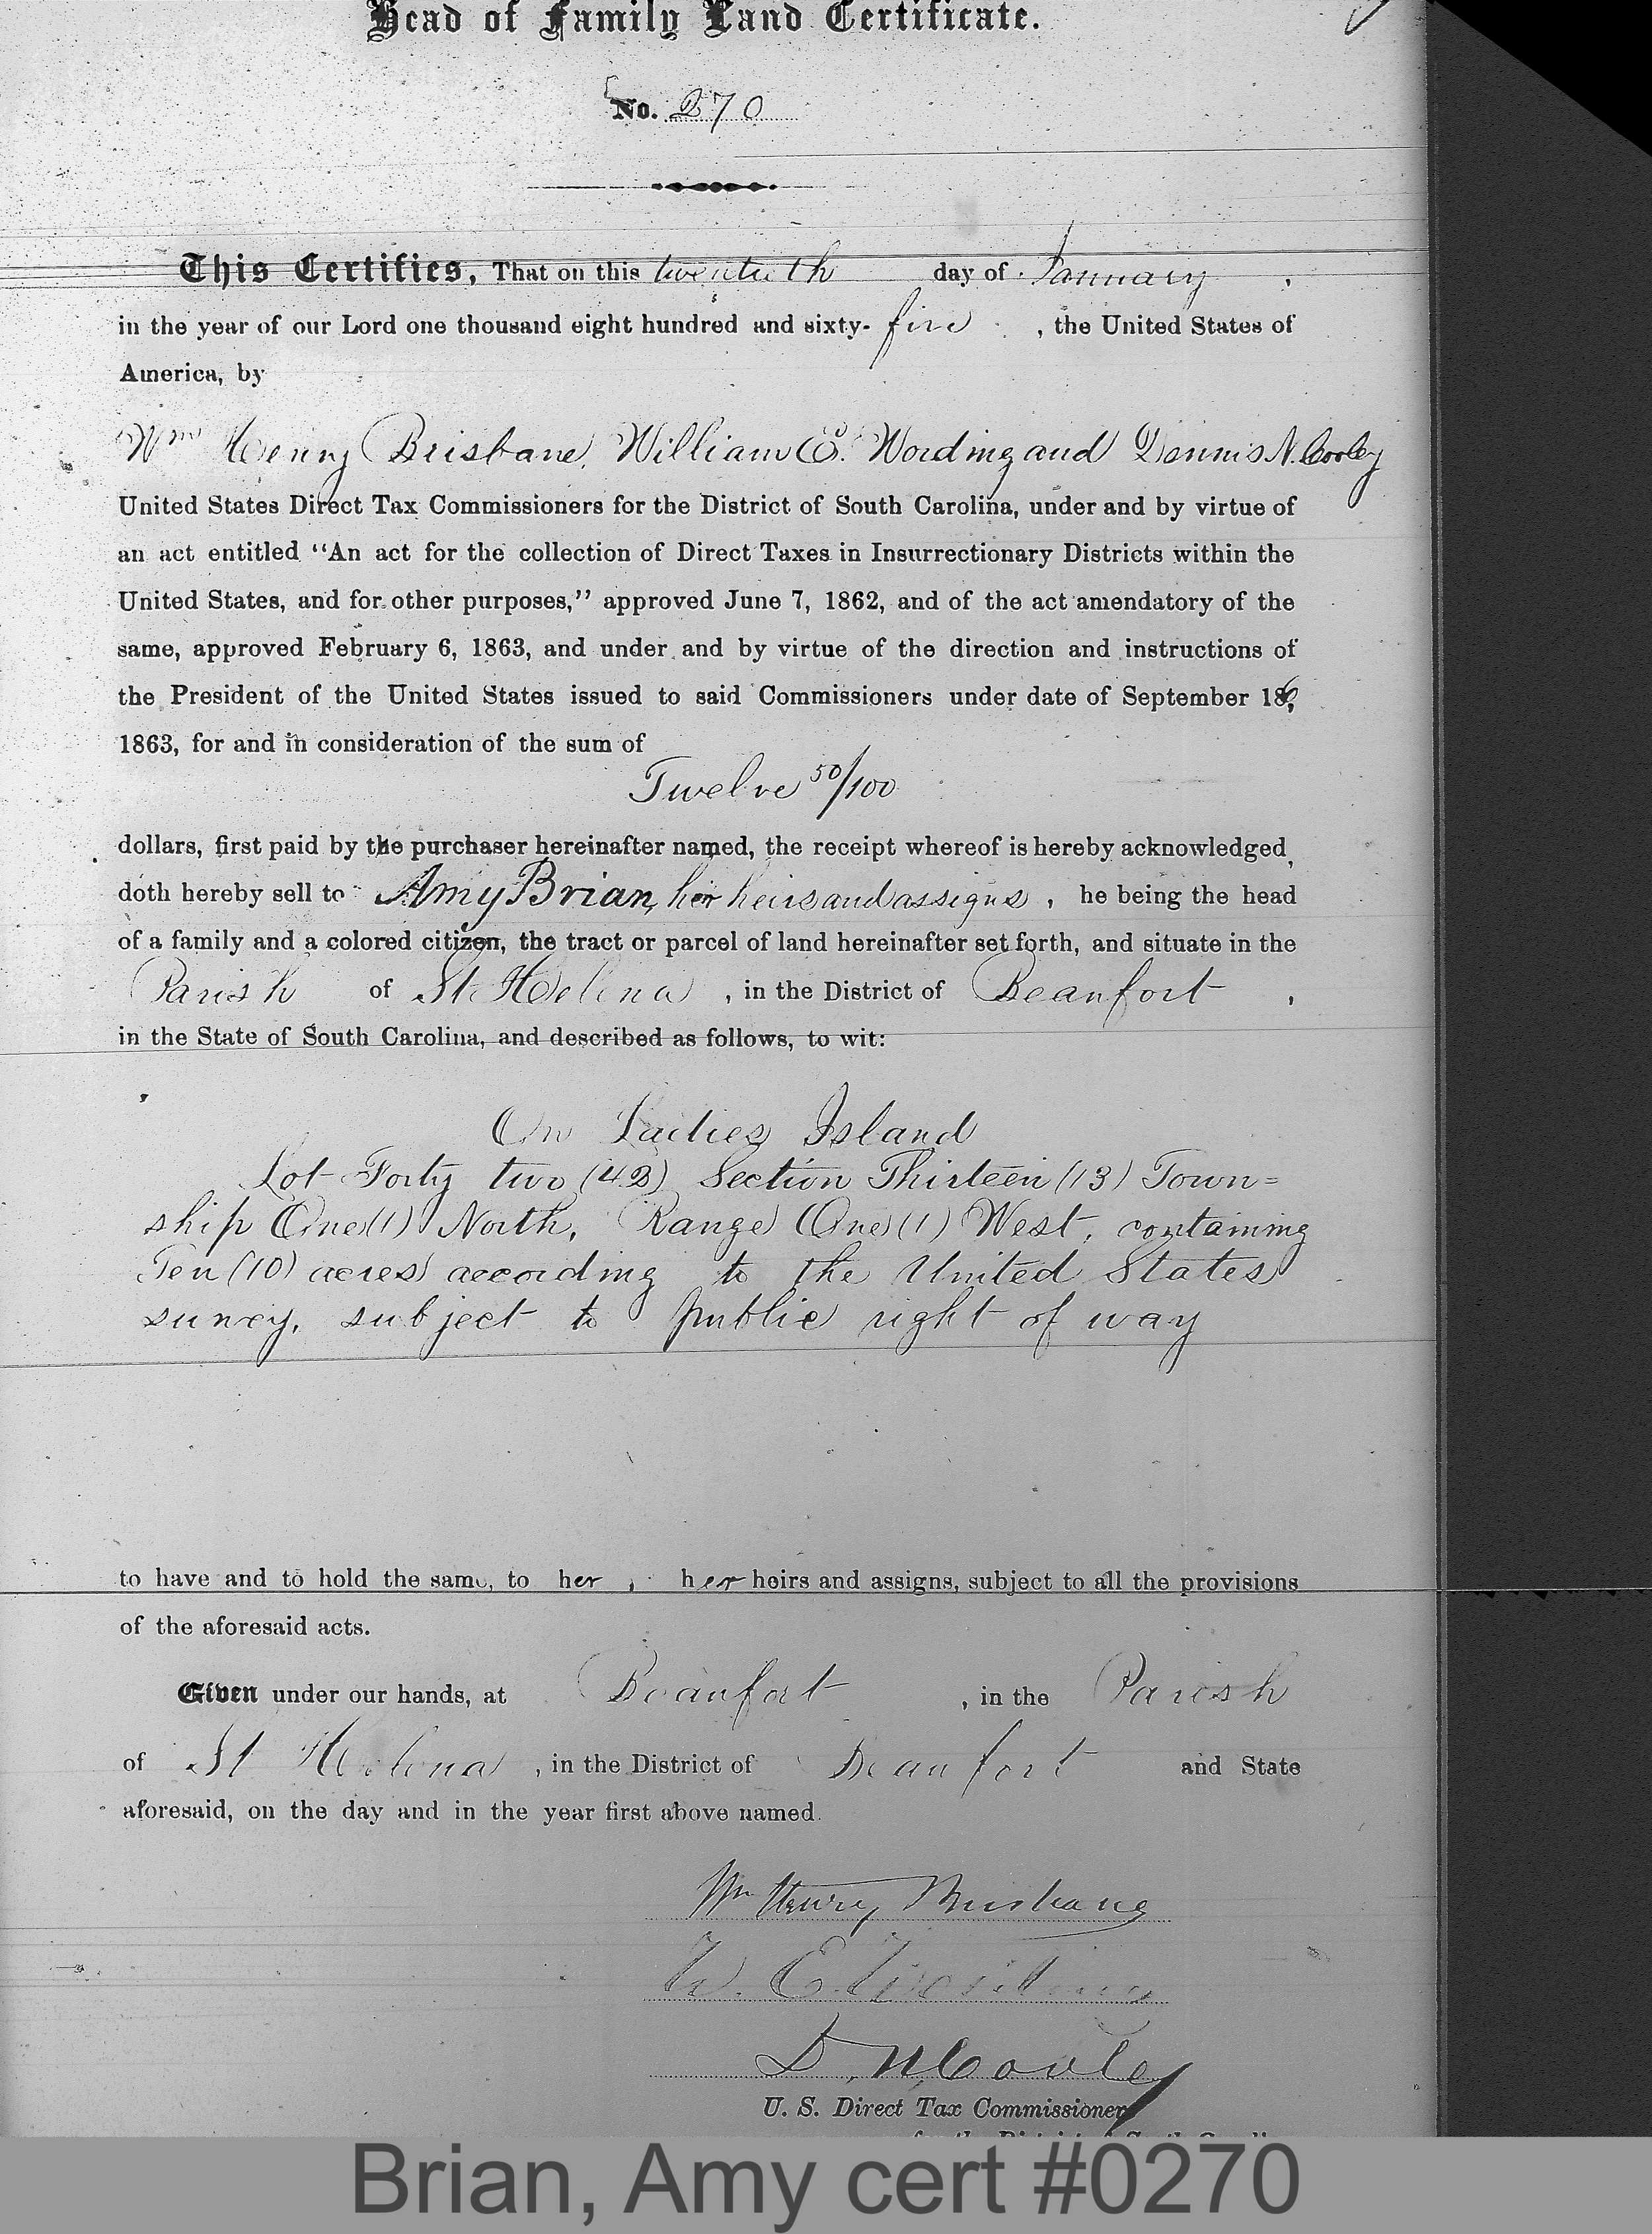 Head of Family Land Certificate.
No. 270
This Certifies, That on this twentieth day of January,
in the year of our Lord one thousand eight hundred and sixty-five, the United States of
America, by
Wm Henry Brisbane, William E. Wording and Dennis N. Cooley
United States Direct Tax Commissioners for the District of South Carolina, under and by virtue of
an act entitled "An act for the collection of Direct Taxes in Insurrectionary Districts within the
United States, and for other purposes," approved June 7, 1862, and of the act amendatory of the
same, approved February 6, 1863, and under and by virtue of the direction and instructions of
the President of the United States issued to said Commissioners under date of September 16,
1863, for and in consideration of the sum of
Twelve 50/100
dollars, first paid by the purchaser hereinafter named, the receipt whereof is hereby acknowledged,
doth hereby sell to Amy Brian, her heirs and assigns, he being the head
of a family and a colored citizen, the tract or parcel of land hereinafter set forth, and situate in the
Parish of St Helena, in the District of Beaufort,
in the State of South Carolina, and described as follows, to wit:
On Ladies Island
Lot Forty two (42) Section Thirteen (13) Town=
ship One (1) North, Range One (1) West, containing
Ten (10) acres according to the United States
survey, subject to public right of way
to have and to hold the same, to her, her heirs and assigns, subject to all the provisions
of the aforesaid acts.
Given under our hands, at Beaufort, in the Parish
of St Helena, in the District of Beaufort and State
aforesaid, on the day and in the year first above named.
Wm Henry Brisbane
W. E. Wording
D. N. Cooley
U. S. Direct Tax Commissioners
Brian, Amy cert #0270